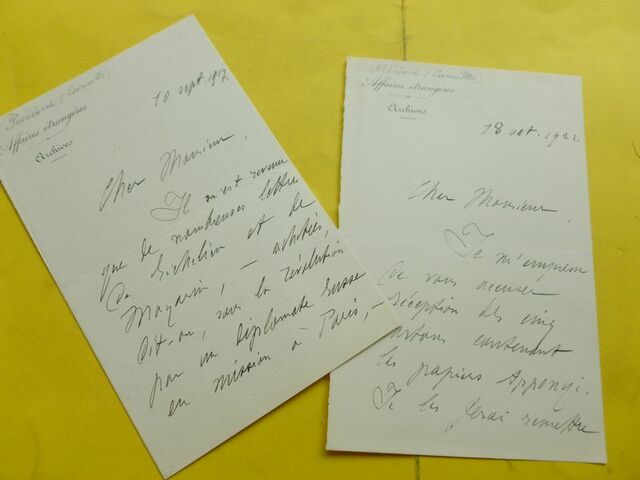 Piccioni (Camille)
Affaires étrangères
Archives
10 sept. 1917.
Cher Monsieur,
Il m'est revenu
que de nombreuses lettres
de Richelieu et de
Mazarin, — achetées,
dit-on, sous la révolution
par un diplomate russe
en mission à Paris, —
Piccioni (Camille)
Affaires étrangères
Archives
18 oct.
Cher Monsieur,
Je m'empresse
de vous accuser
réception des cinq
cartons contenant
les papiers Apponyi.
Je les ferai remettre